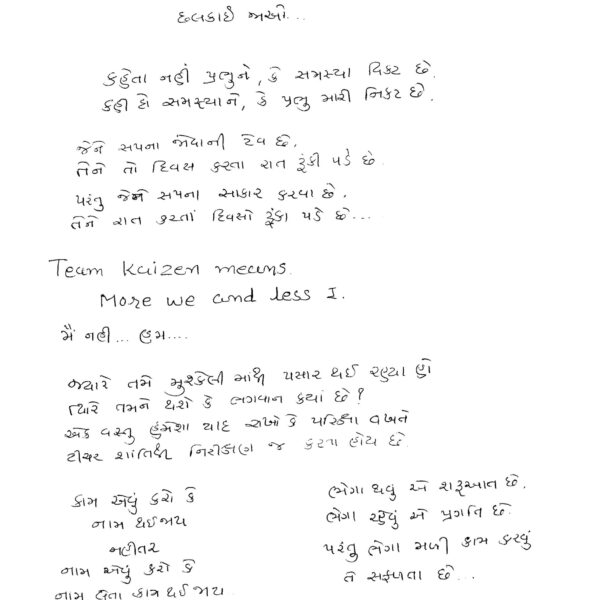 છલકાઈ જાઓ...
કહેતા નહીં પ્રભુને, કે સમસ્યા વિકટ છે.
કહી દો સમસ્યાને, કે પ્રભુ મારી નિકટ છે.
જેને સપના જોવાની ટેવ છે.
તેને તો દિવસ કરતા રાત ટૂંકી પડે છે
પરંતુ જેને સપના સાકાર કરવા છે.
તેને રાત કરતાં દિવસો ટૂંકા પડે છે...
Team Kaizen means.
More we and less I.
મૈં નહી... હમ....
જ્યારે તમે મુશ્કેલી માંથી પસાર થઈ રહ્યા હો
ત્યારે તમને થશે કે ભગવાન ક્યાં છે?
એક વસ્તુ હંમેશા યાદ રાખો કે પરિક્ષા વખતે
ટીચર શાંતિથી નિરીક્ષણ જ કરતા હોય છે
કામ એવું કરો કે
નામ થઈ જાય
નહીતર
નામ એવું કરો કે
નામ લેતા કામ થઈ જાય..
ભેગા થવું એ શરૂઆત છે.
ભેગા રહેવું એ પ્રગતિ છે.
પરંતુ ભેગા મળી કામ કરવું
તે સફળતા છે...